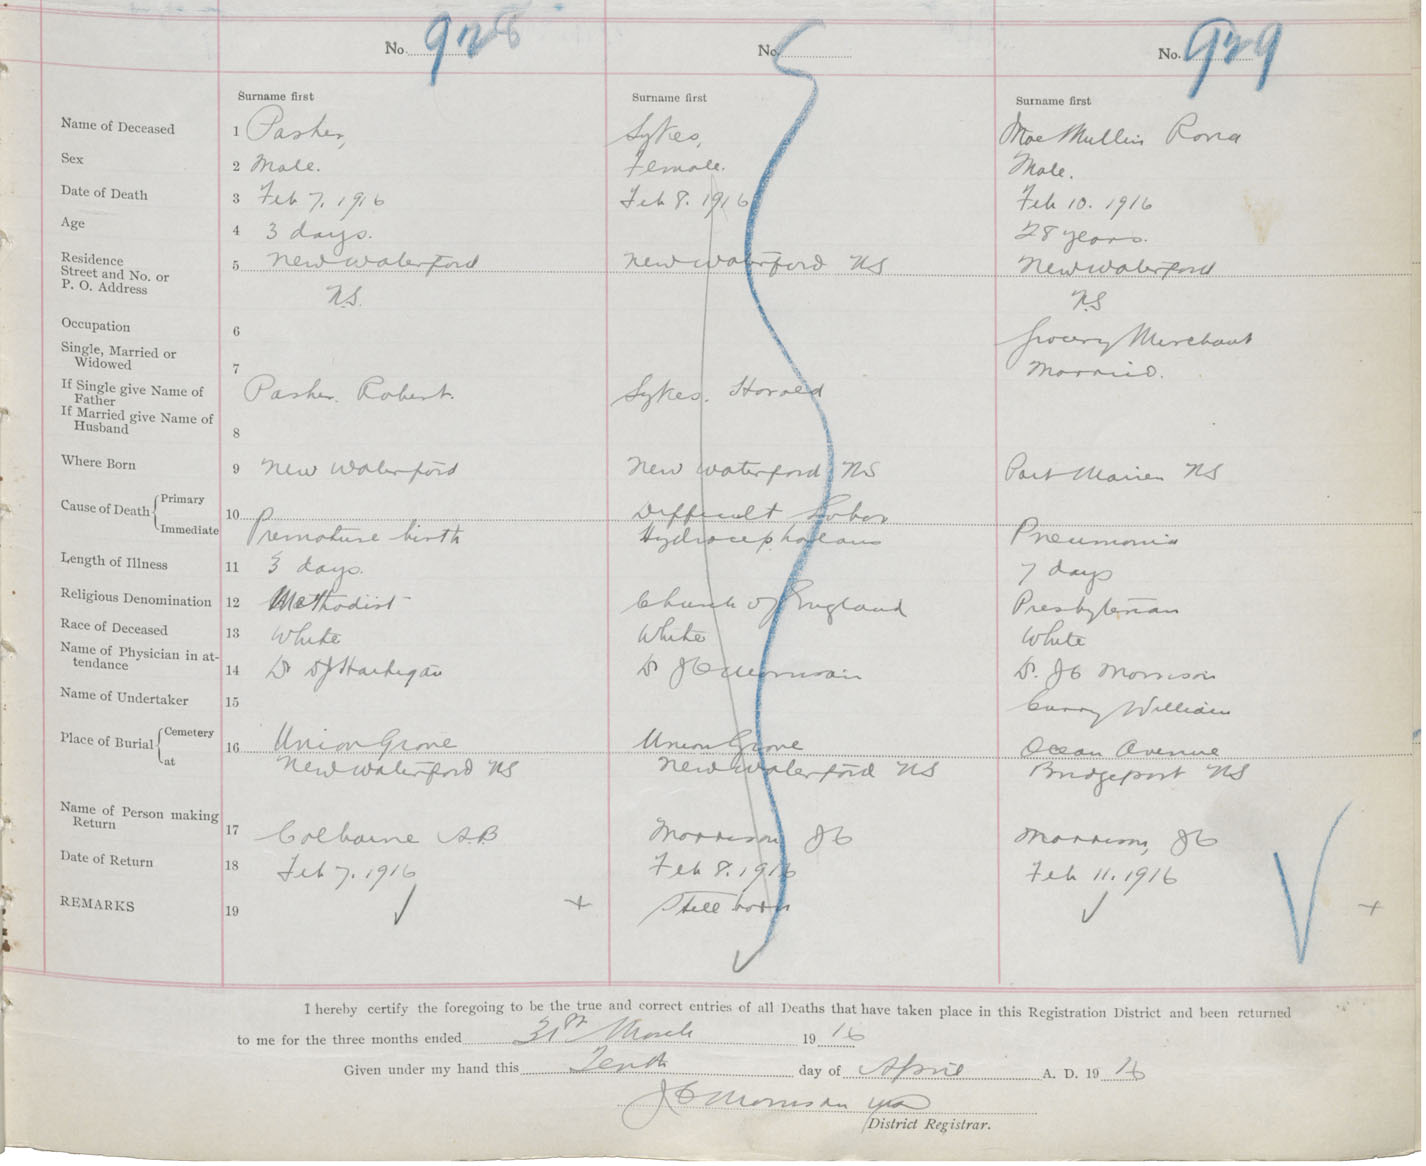 No. 928 No. No. 929
Surname first Surname first Surname first
Name of Deceased 1 Pasher, Sykes, MacMullin Rona
Sex 2 Male. Female. Male.
Date of Death 3 Feb 7, 1916 Feb 8. 1916 Feb 10. 1916
Age 4 3 days. 28 years.
Residence 5 New Waterford New Waterford NS New Waterford
Street and No. or
P. O. Address N.S. NS
Occupation 6 Grocery Merchant
Single, Married or
Widowed 7 Married.
If Single give Name of
Father Pasher. Robert. Sykes. Harold
If Married give Name of
Husband 8
Where Born 9 New Waterford New Waterford NS Port Morien NS
Cause of Death Primary 10 Difficult Labor
Immediate Premature birth Hydrocephaleus Pneumonia
Length of Illness 11 3 days. 7 days
Religious Denomination 12 Methodist Church of England Presbyterian
Race of Deceased 13 White White White
Name of Physician in at-
tendance 14 Dr DJ Hartigan Dr JC Morrison Dr. JC Morrison
Name of Undertaker 15 Curry William
Place of Burial Cemetery 16 Union Grove Union Grove Ocean Avenue
at New Waterford NS New Waterford NS Bridgeport NS
Name of Person making
Return 17 Colbourne A.B Morrison JC Morrison, JC
Date of Return 18 Feb 7. 1916 Feb 8. 1916 Feb 11. 1916
REMARKS 19 Still born
I hereby certify the foregoing to be the true and correct entries of all Deaths that have taken place in this Registration District and been returned
to me for the three months ended 31st March 19 16
Given under my hand this Tenth day of April A. D. 19 16
JC Morrison MD
District Registrar.